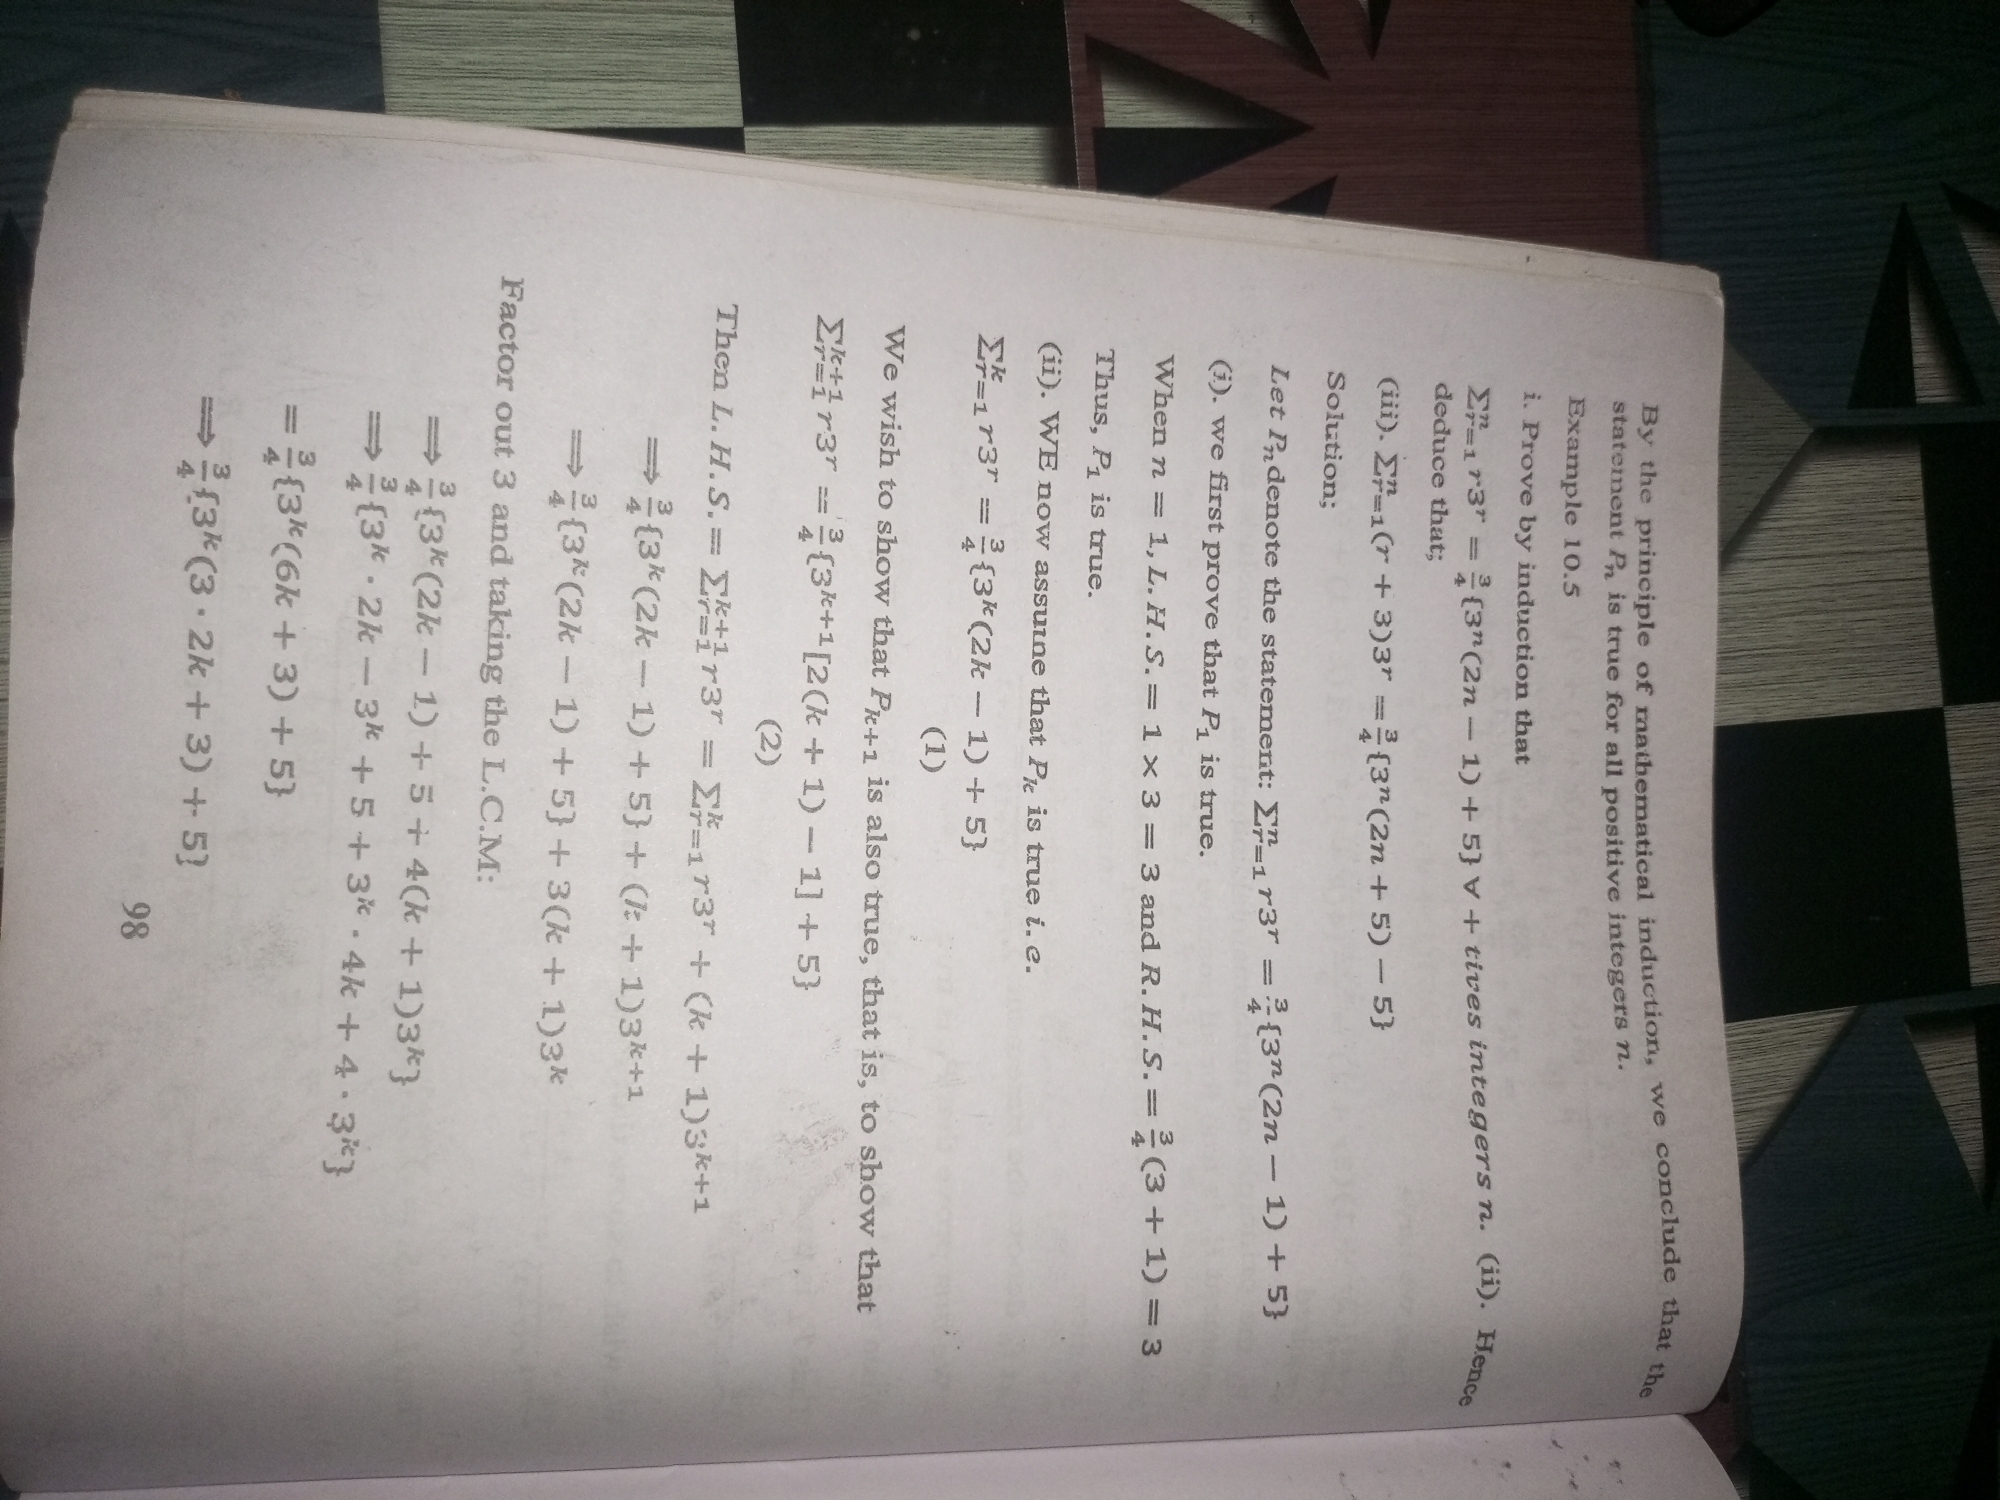 By the principle of mathematical induction, we conclude that the
statement Pₙ is true for all positive integers n.
Example 10.5
i. Prove by induction that
∑ⁿᵣ₌₁ r3ʳ = 3/4{3ⁿ(2n − 1) + 5} ∀ + tives integers n. (ii). Hence
deduce that;
(iii). ∑ⁿᵣ₌₁(r + 3)3ʳ = 3/4{3ⁿ(2n + 5) − 5}
Solution;
Let Pₙ denote the statement: ∑ⁿᵣ₌₁ r3ʳ = 3/4{3ⁿ(2n − 1) + 5}
(i). we first prove that P₁ is true.
When n = 1, L.H.S. = 1 × 3 = 3 and R.H.S. = 3/4(3 + 1) = 3
Thus, P₁ is true.
(ii). WE now assume that Pₖ is true i.e.
∑ᵏᵣ₌₁ r3ʳ = 3/4{3ᵏ(2k − 1) + 5}
(1)
We wish to show that Pₖ₊₁ is also true, that is, to show that
∑ᵏ⁺¹ᵣ₌₁ r3ʳ = 3/4{3ᵏ⁺¹[2(k + 1) − 1] + 5}
(2)
Then L.H.S. = ∑ᵏ⁺¹ᵣ₌₁ r3ʳ = ∑ᵏᵣ₌₁ r3ʳ + (k + 1)3ᵏ⁺¹
⟹ 3/4{3ᵏ(2k − 1) + 5} + (k + 1)3ᵏ⁺¹
⟹ 3/4{3ᵏ(2k − 1) + 5} + 3(k + 1)3ᵏ
Factor out 3 and taking the L.C.M:
⟹ 3/4{3ᵏ(2k − 1) + 5 + 4(k + 1)3ᵏ}
⟹ 3/4{3ᵏ · 2k − 3ᵏ + 5 + 3ᵏ · 4k + 4 · 3ᵏ}
= 3/4{3ᵏ(6k + 3) + 5}
⟹ 3/4{3ᵏ(3 · 2k + 3) + 5}
98